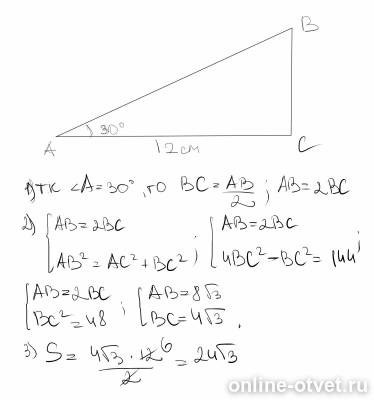 B
30°
A
12см
C
1) тк ∠A = 30°, то BC = AB/2 ; AB = 2BC
2) { AB = 2BC ; { AB = 2BC ;
AB² = AC² + BC² 4BC² - BC² = 144
{ AB = 2BC ; { AB = 8√3
BC² = 48 BC = 4√3 .
3) S = 4√3 · 12 6 / 2 = 24√3
online-otvet.ru